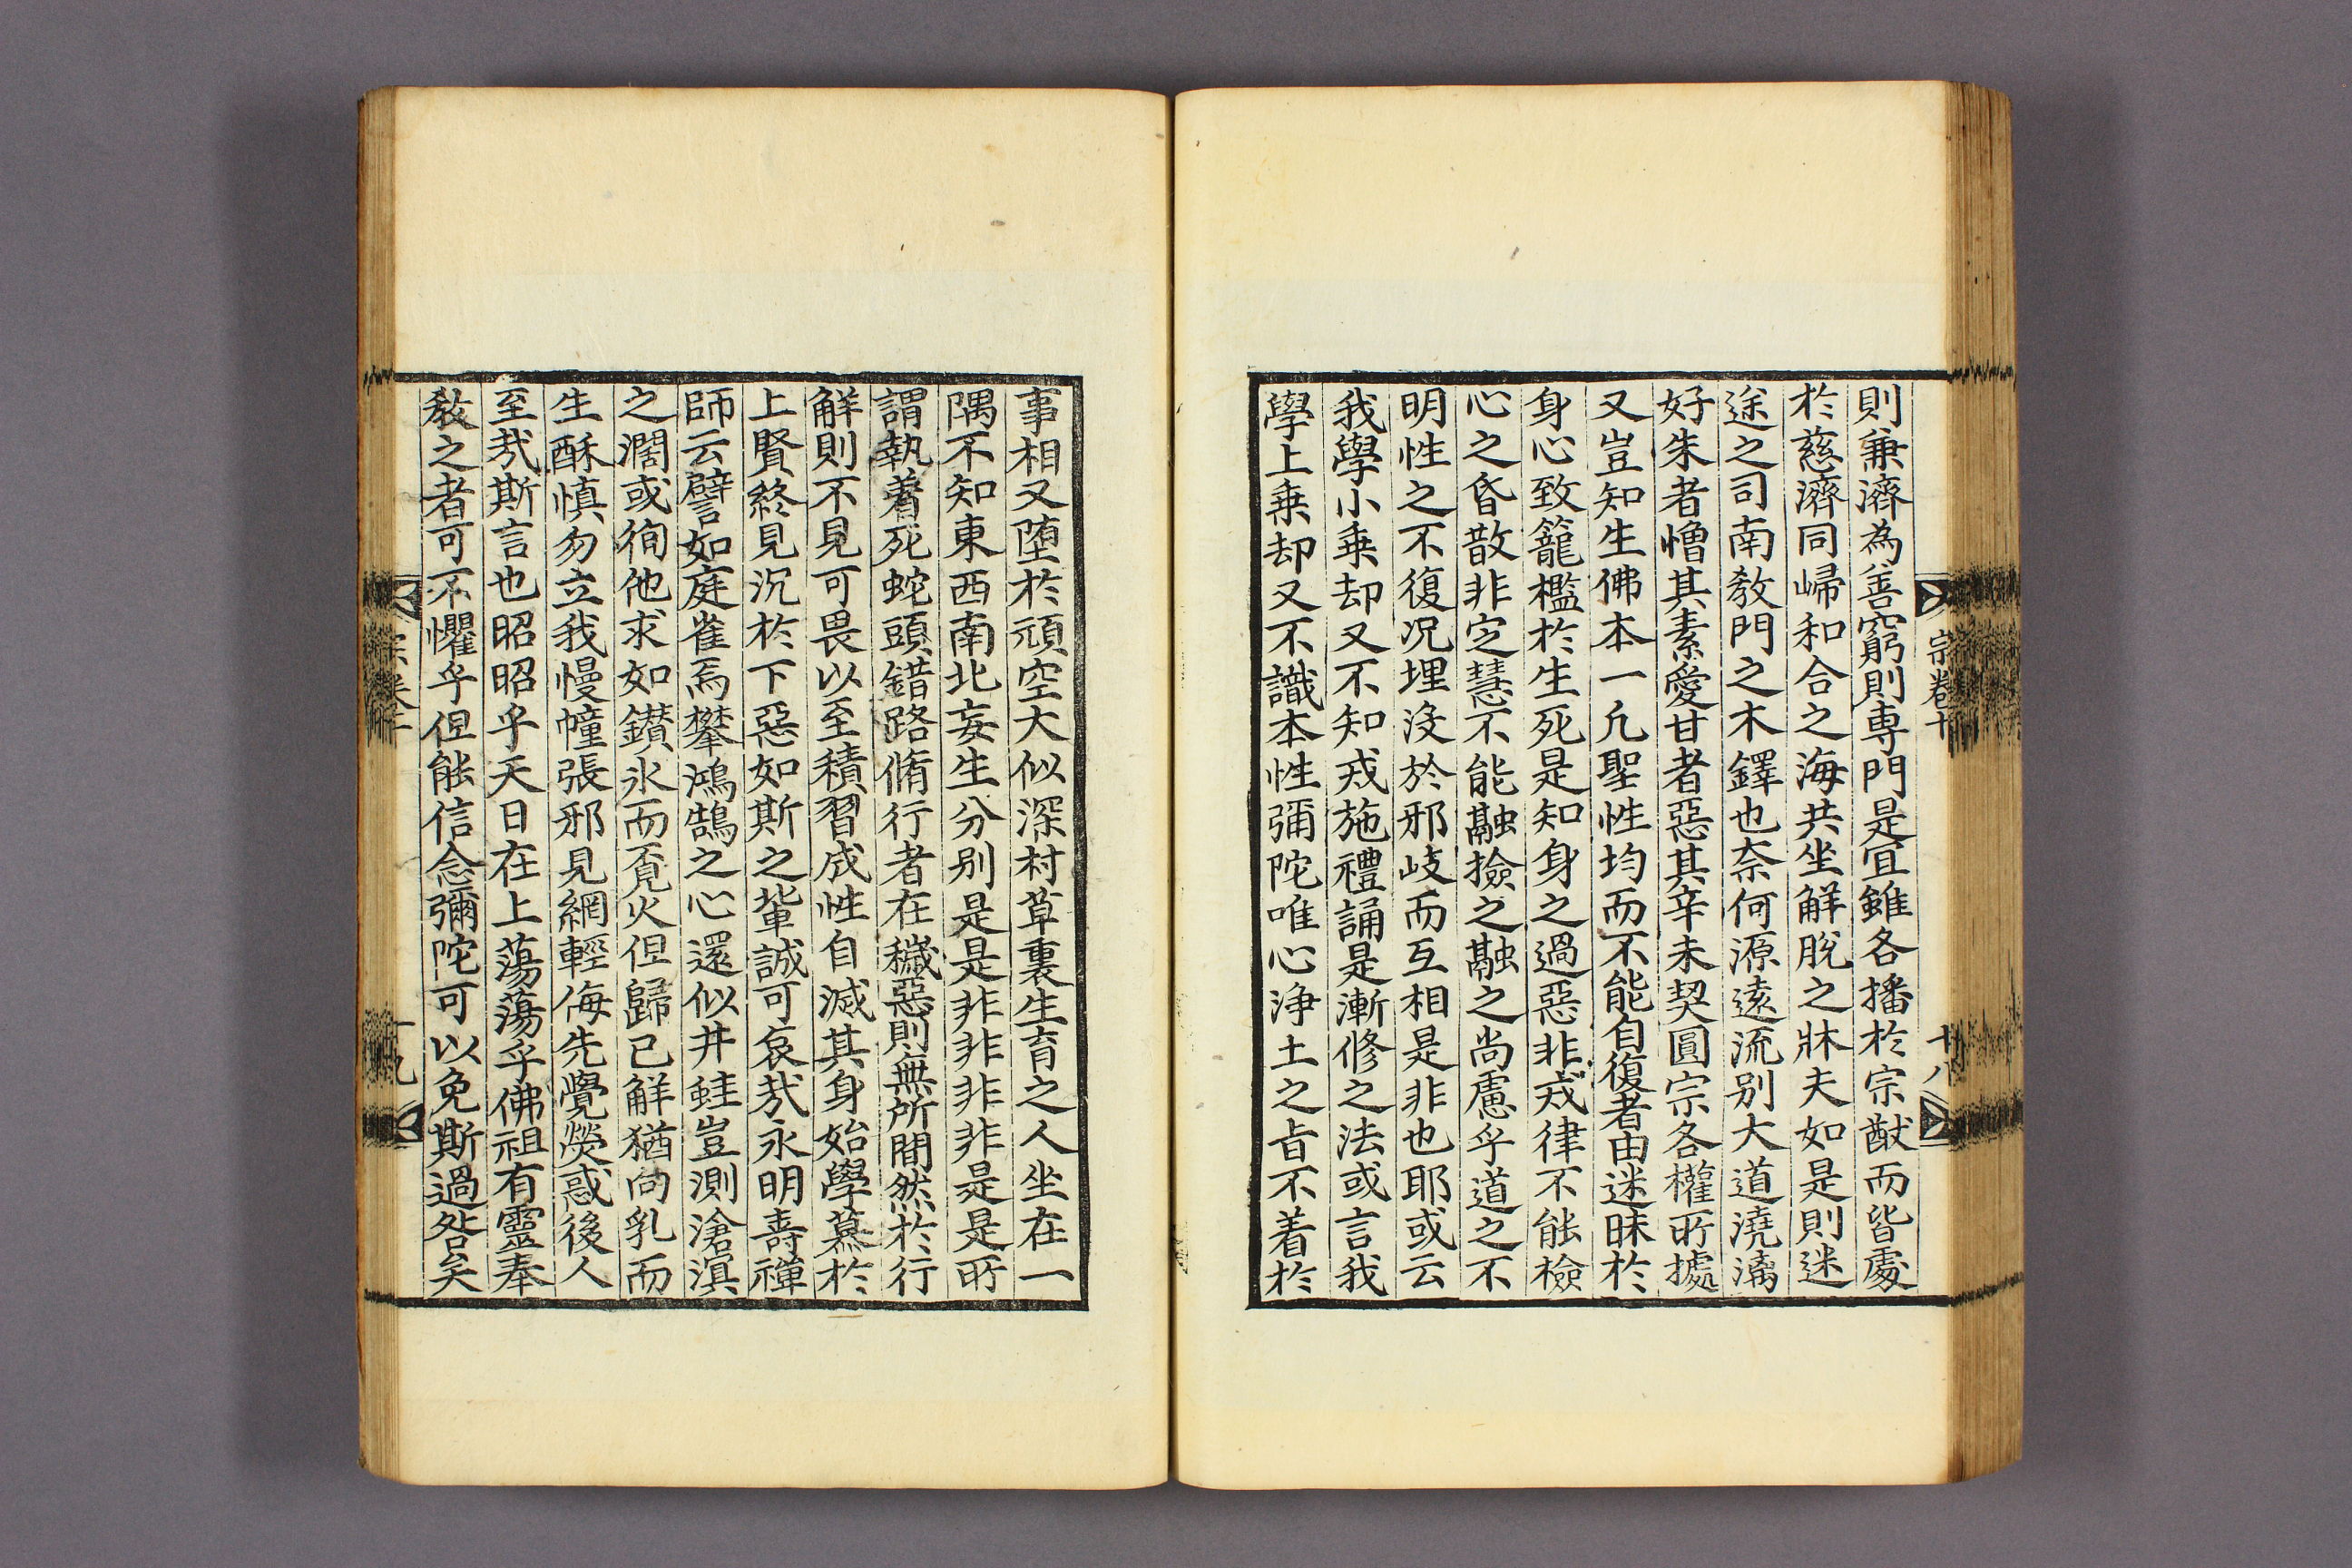 則兼濟為善窮則専門是宜雖各播於宗猷而皆處
於慈濟同㱕和合之海共坐解脫之牀夫如是則迷
途之司南教門之木鐸也奈何源逺流别大道澆漓
好朱者憎其素愛甘者惡其辛未契圓宗各權所據
又豈知生佛本一凡聖性均而不能自復者由迷昧於
身心致籠檻於生死是知身之過惡非戒律不能檢
心之昏散非定慧不能融撿之融之尚慮乎道之不
明性之不復况埋沒於邪岐而互相是非也耶或云
我學小乗却又不知戒施禮誦是漸修之法或言我
學上乗却又不識本性彌陀唯心淨土之㫖不着於
宗卷十
十八
事相又堕於頑空大似深村草裏生育之人坐在一
隅不知東西南北妄生分别是是非非非非是是所
謂執着死蛇頭錯路脩行者在穢惡則無所間然於行
解則不見可畏以至積習成性自滅其身始學慕於
上賢終見沉於下惡如斯之輩誠可哀哉永明壽禪
師云譬如庭雀焉攀鴻鵠之心還似井蛙豈測滄溟
之濶或徇他求如鑚氷而覔火但歸已解猶向乳而
生酥慎勿立我慢幢張邪見網輕侮先覺熒惑後人
至哉斯言也昭昭乎天日在上蕩蕩乎佛祖有靈奉
教之者可不懼乎但能信念彌陀可以免斯過咎矣